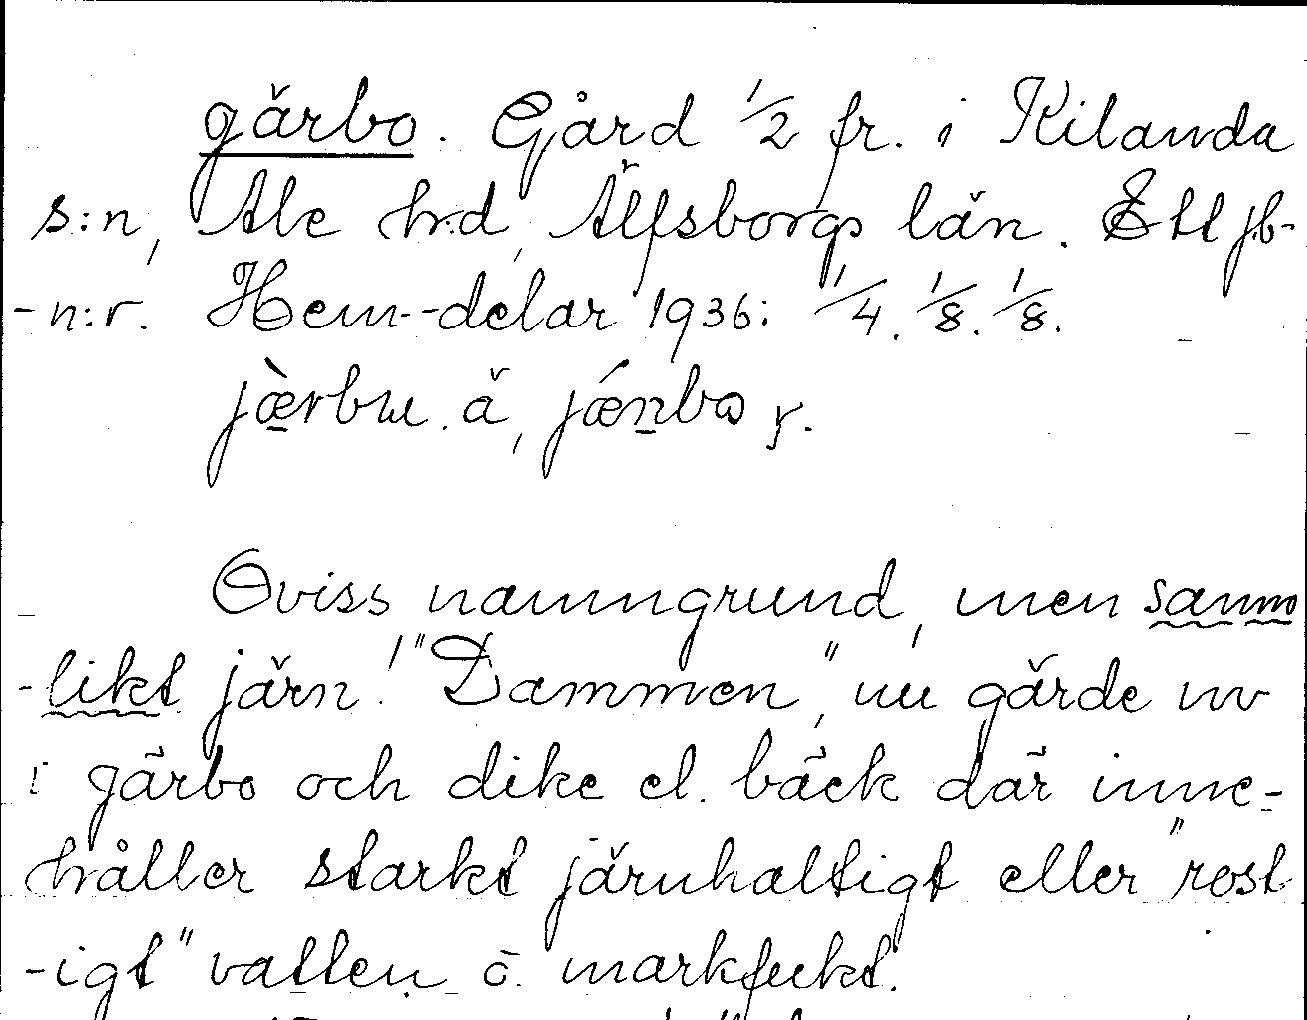 gärbo. Gård 1/2 fr. i Kilanda
s:n, Ale h:d, Älfsborgs län. Ett jb-
-n:r. Hem--delar 1936: 1/4. 1/8. 1/8.
jæ̀rbu. ä, jǽnbo y.
Oviss namngrund, men sanno
-likt järn! "Dammen", nu gärde nv
i gärbo och dike el. bäck där inne-
håller starkt järnhaltigt eller "rost
-igt" vatten o. markfukt.